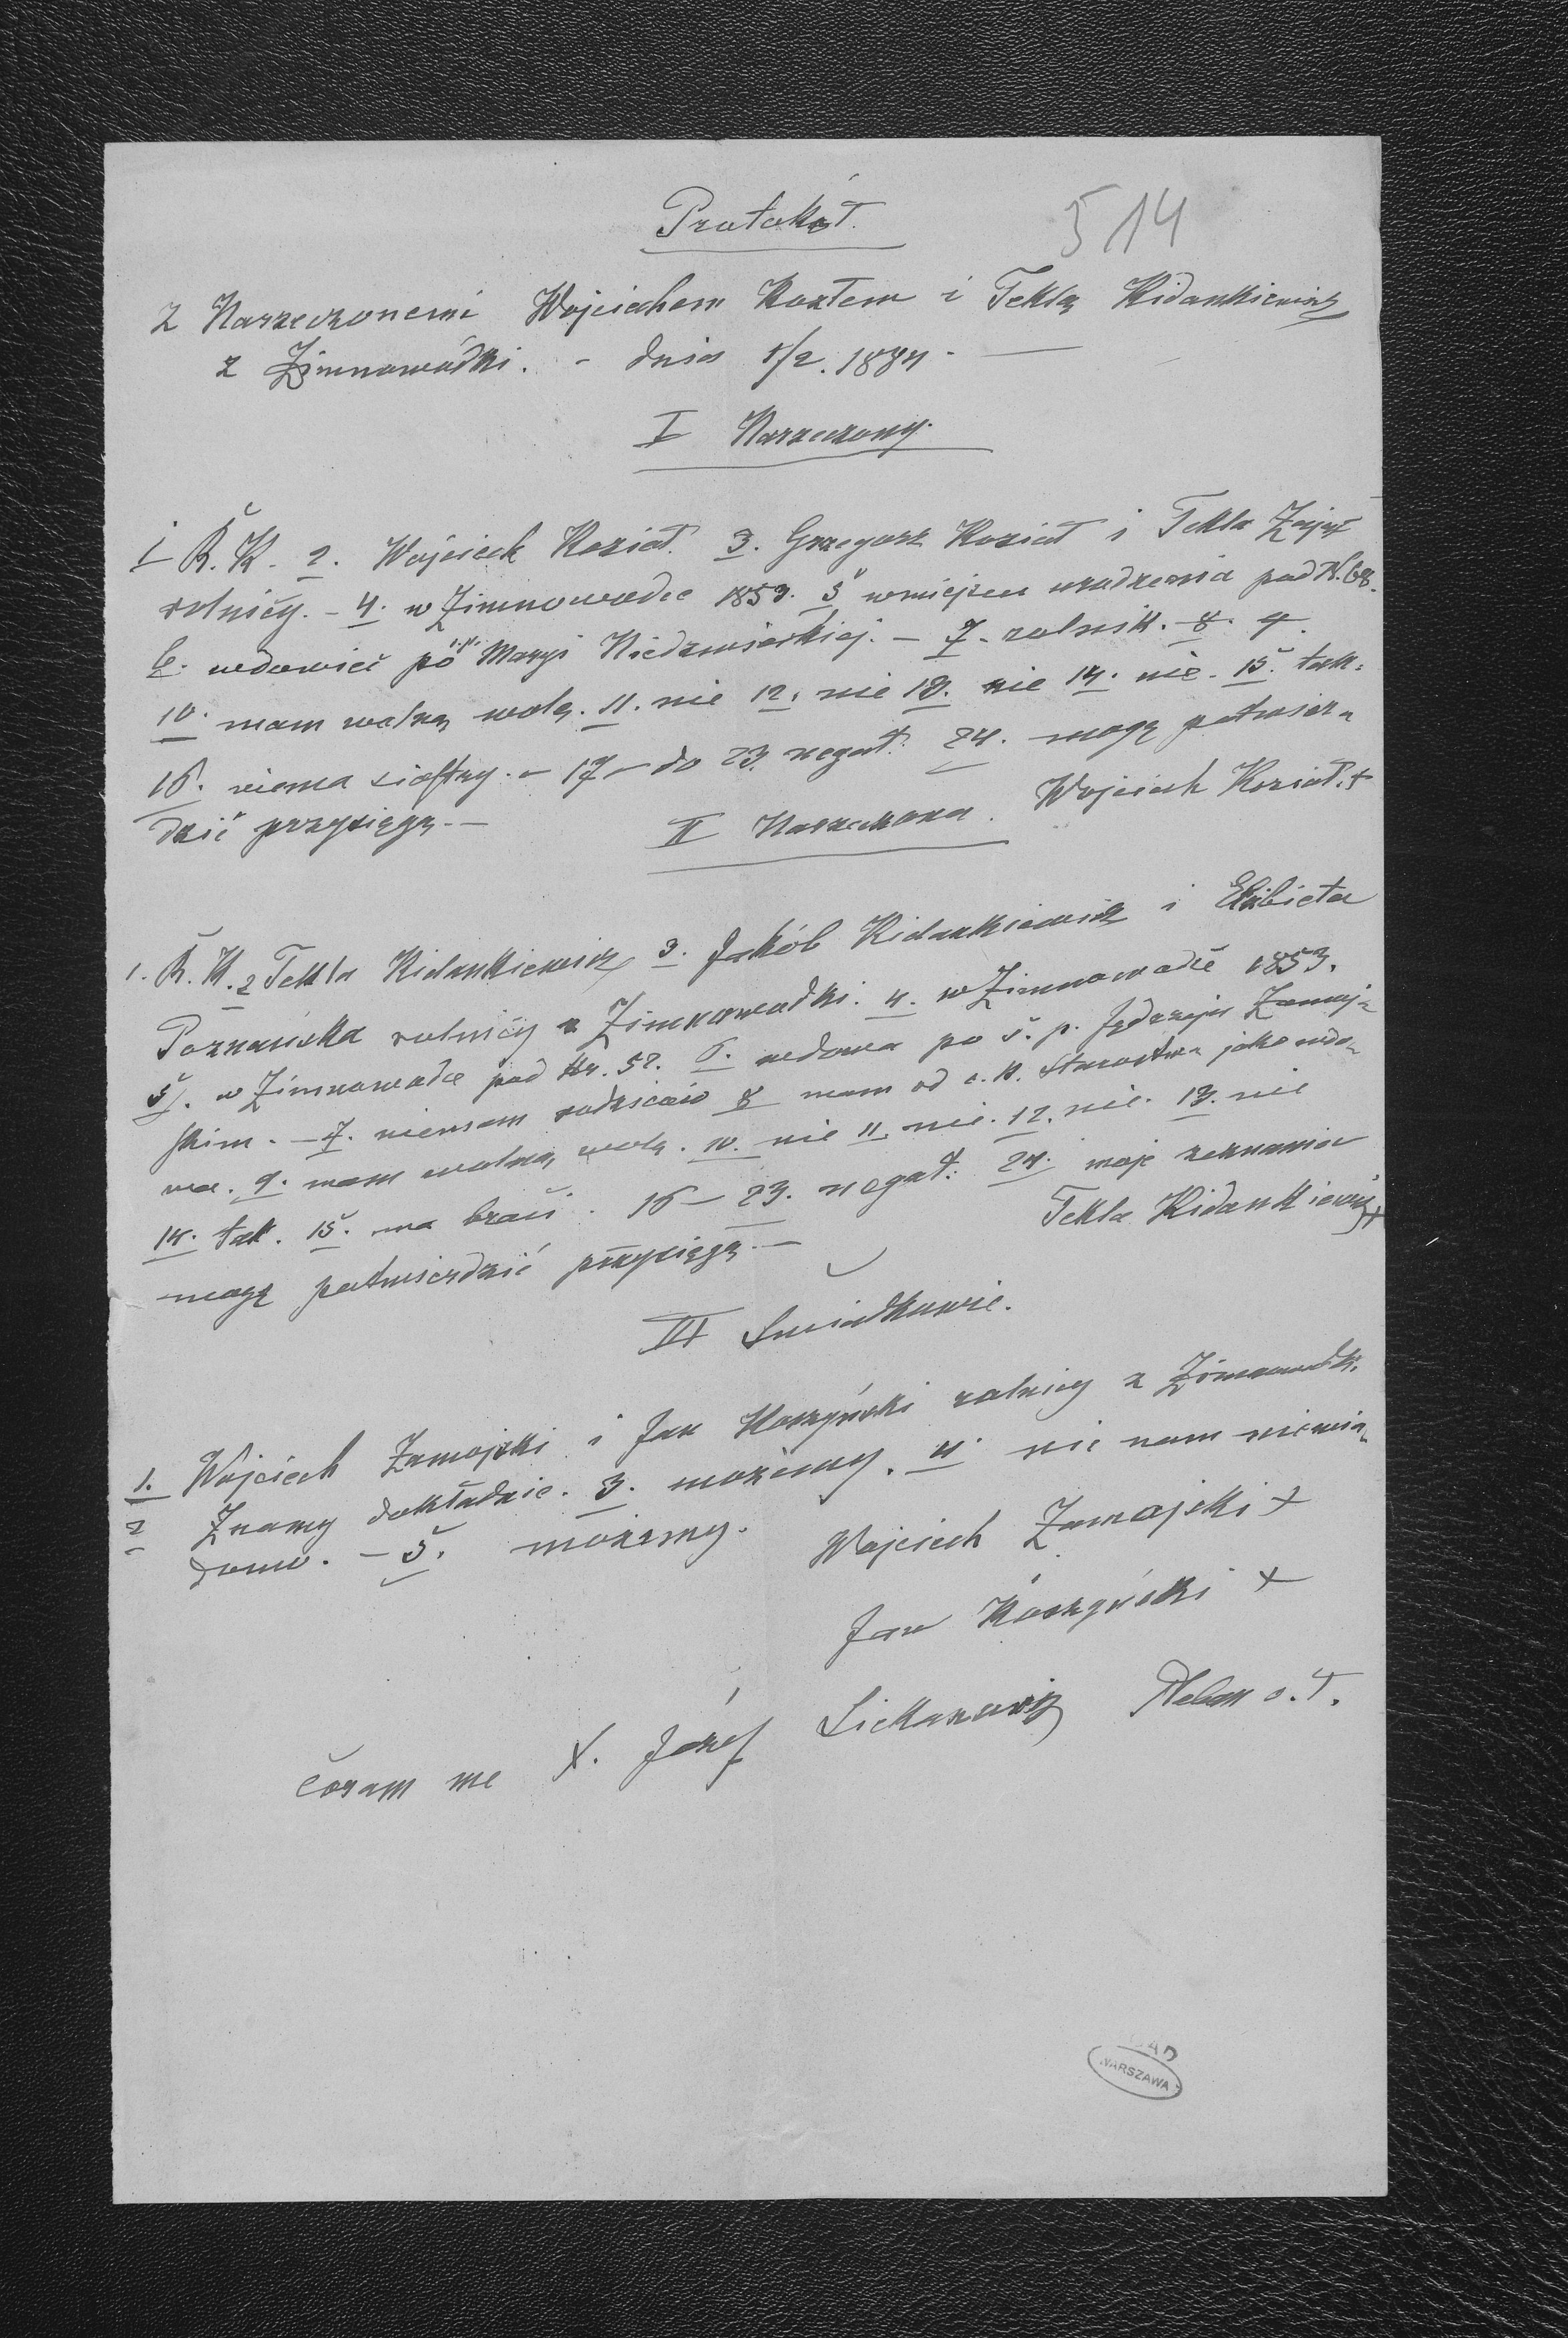 Protokół.
514
Z Narzeczonemi Wojciechem Kozłem i Teklą Kidankiewicz
z Zimnowódki. - dnia 5/2. 1884. —
I Narzeczony.
1 R. K. 2. Wojciech Kozioł. 3. Grzegorz Kozioł i Tekla Zając
rolnicy. - 4. w Zimnowodce 1853. 5 w miejscu urodzenia pod N. 68.
6. wdowiec po Maryi Niedzwieckiej. - 7. rolnik. - 8. 9.
10. mam wolną wolę. 11. nie 12. nie 13. nie 14. nie. 15. tak.
16. niema siostry. - 17 - do 23. negat. 24. mogę potwier-
dzić przysięgą. —
Wojciech Kozioł. +
II Narzeczona.
1. R. K. 2 Tekla Kidankiewicz 3. Jakób Kidankiewicz i Elżbieta
Poznańska rolnicy z Zimnowodki. 4. w Zimnowodce 1853.
5. w Zimnowodce pod Nr. 52. 6. wdowa po ś. p. Jędrzeju Zamoj-
skim. - 7. niemam rodziców 8 mam od c. k. Starostwa jako wdo-
wa. 9. mam wolną wolę. 10. nie 11. nie. 12. nie. 13. nie
14. tak. 15. ma braci. 16 - 23. negat. 24. moje zeznania
mogę potwierdzić przysięgą. —
Tekla Kidankiewicz +
III Świadkowie.
1. Wojciech Zamojski i Jan Koszyński rolnicy z Zimnowodki.
2 Znamy dokładnie. 3. możemy. 4. nic nam niewia-
domo. - 5. możemy.
Wojciech Zamojski +
Jan Koszyński +
coram me X. Józef Pleban o. ł.
AD
WARSZAWA